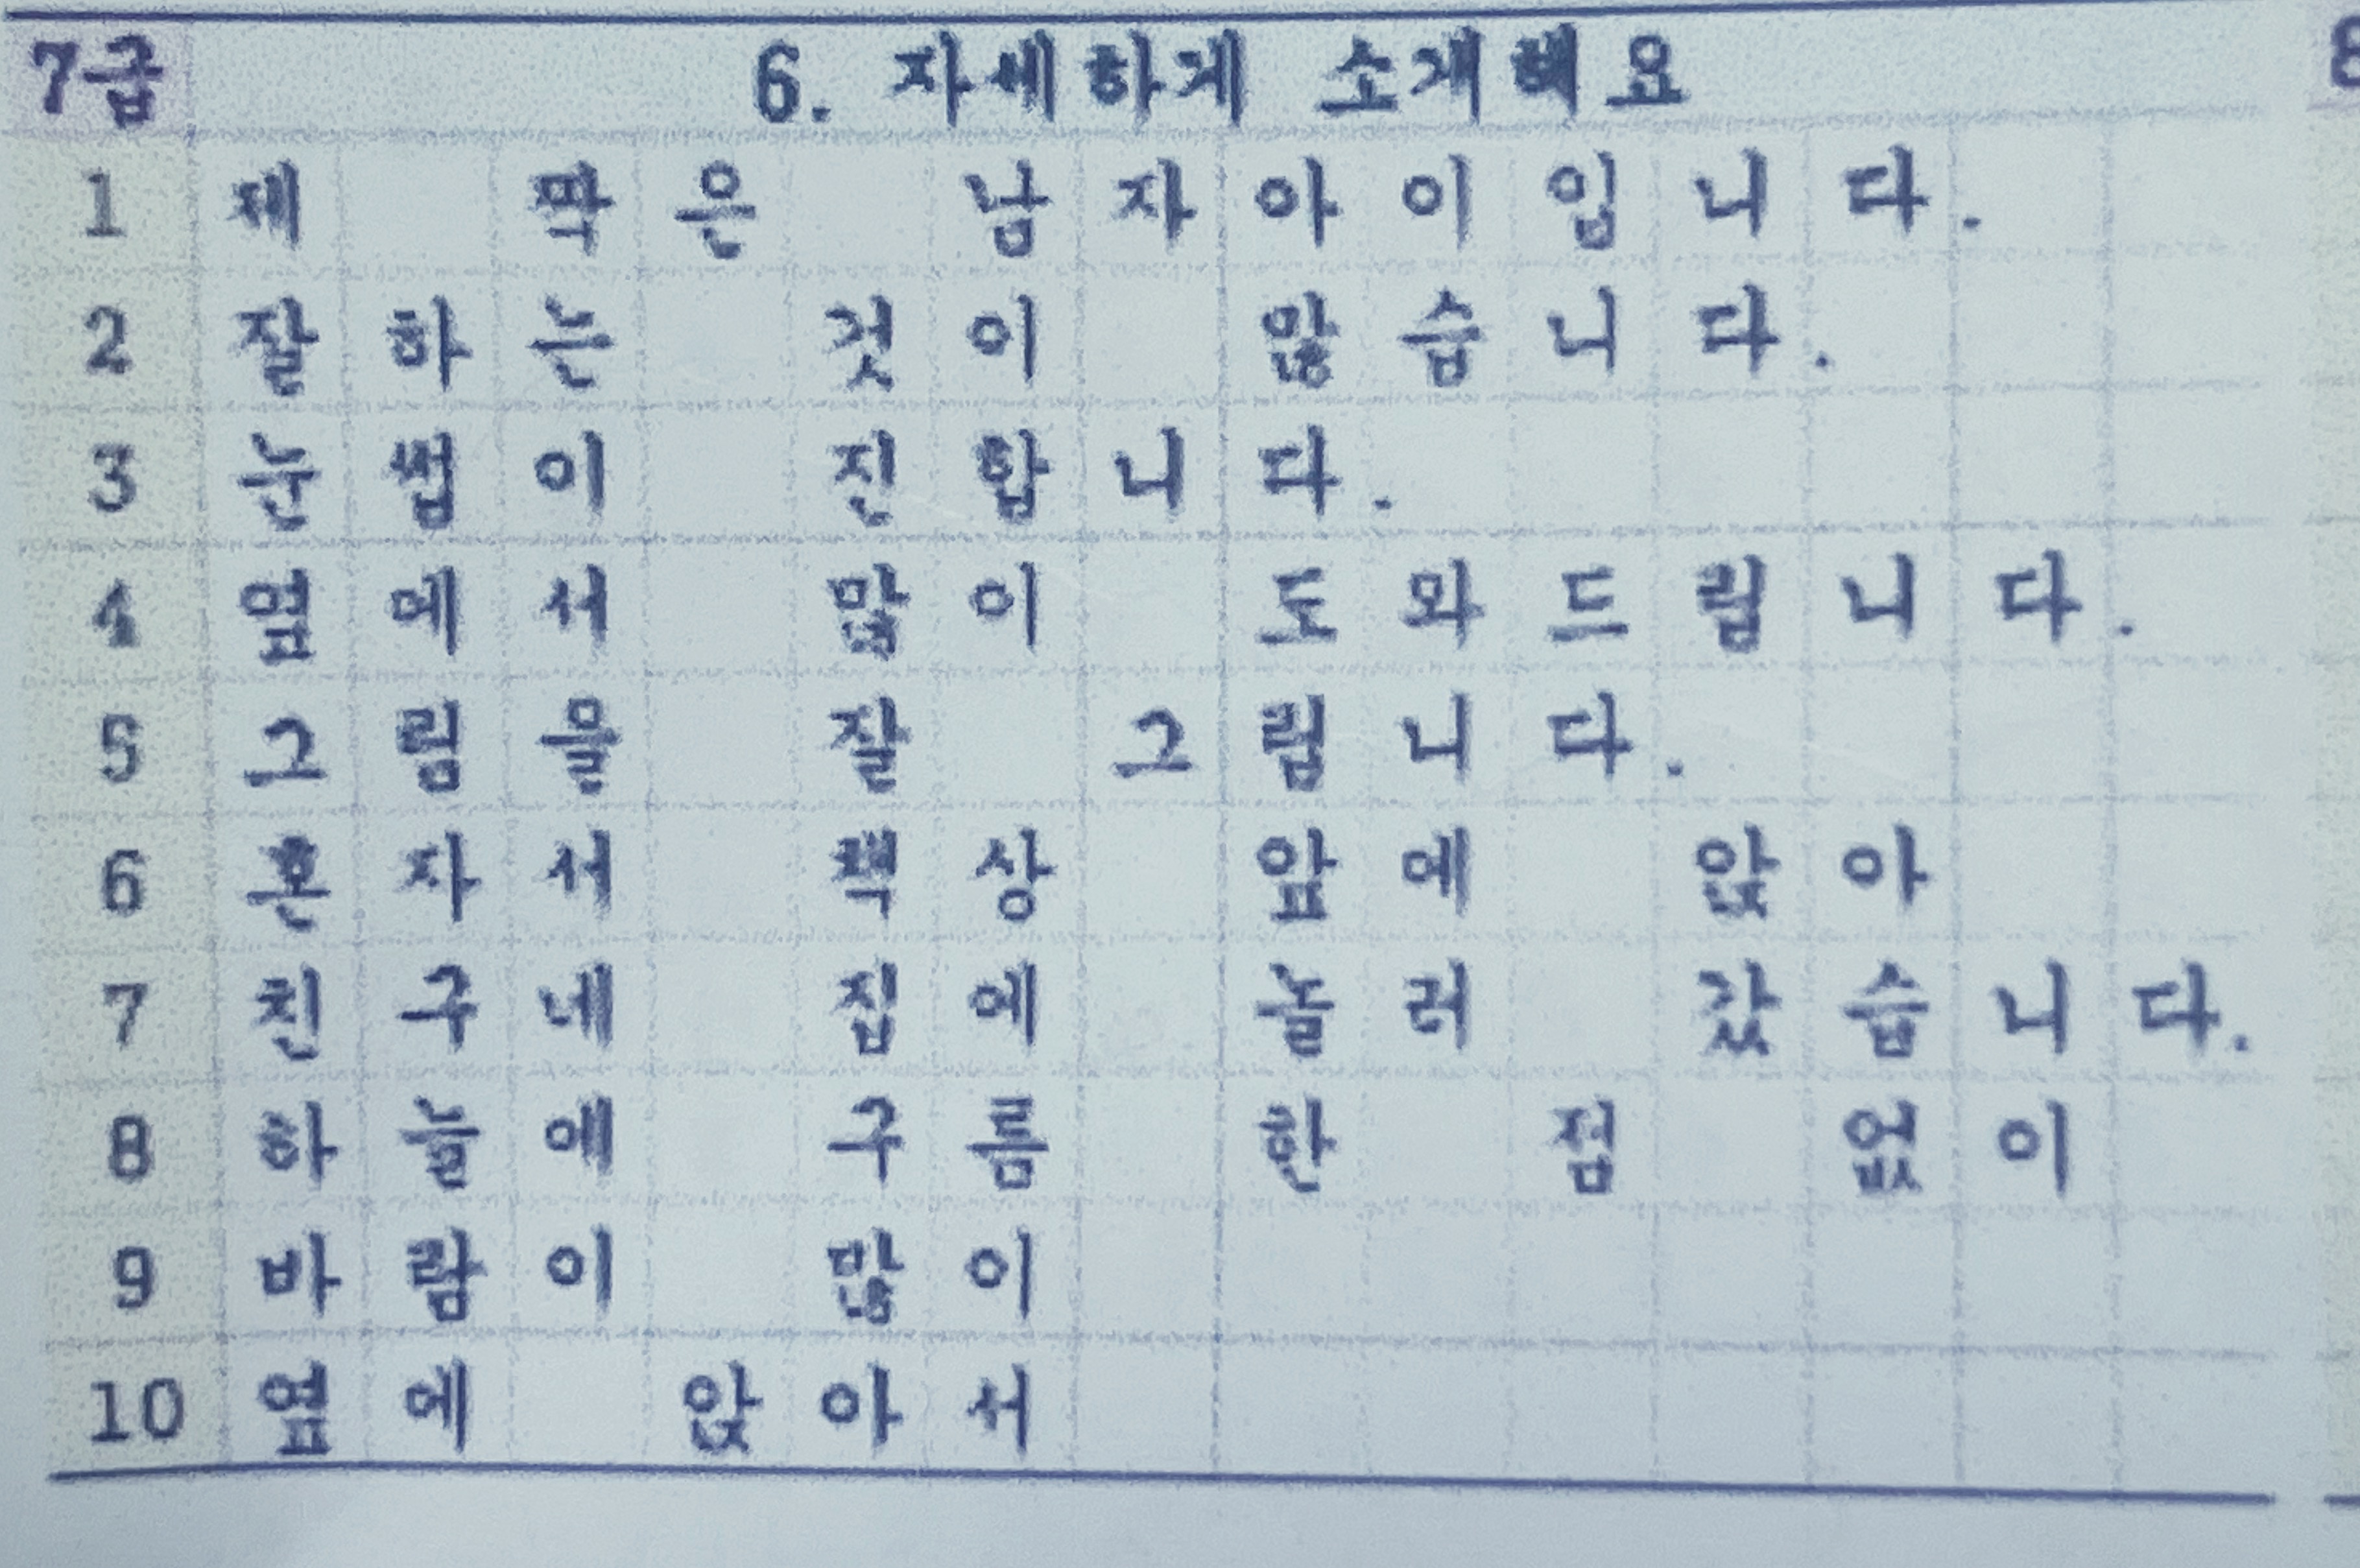 7급 6. 자세하게 소개해요
1 제 짝은 남자아이입니다.
2 잘하는 것이 많습니다.
3 눈썹이 진합니다.
4 옆에서 많이 도와드립니다.
5 그림을 잘 그립니다.
6 혼자서 책상 앞에 앉아
7 친구네 집에 놀러 갔습니다.
8 하늘에 구름 한 점 없이
9 바람이 많이
10 옆에 앉아서